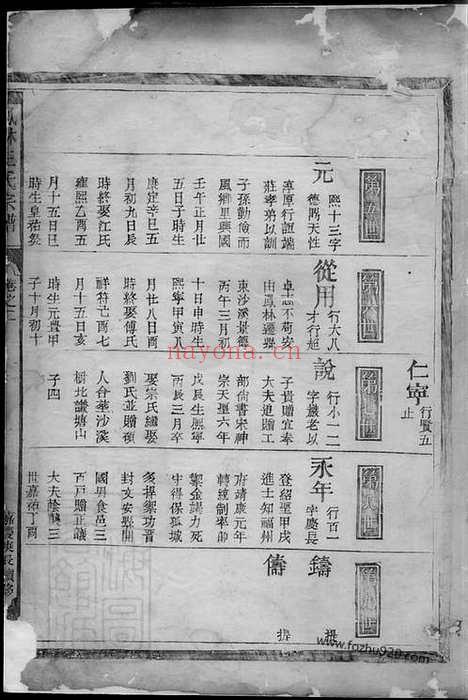 第五世
元
熙十三字
德興天性
淳原行誼端
莊孝弟以訓
子孫勤儉而
風鄉里興國
壬午正月廿
五日子時生
康定辛巳五
月初九日辰
時終娶江氏
雍熙乙酉五
月十五日巳
時生皇祐癸
第六世
從用
行大八
才行超
卓
不苟安
由鳳林遷
東沙溪景德
丙午三月初
十日申時生
熙寧甲寅八
月廿八日子
時終娶傅氏
祥符亡酉七
月十五日亥
時生元豊甲
子十月初十
仁寧
行賢五
止
說
行小一二
字嚴老以
子貴贈宜奉
大夫追贈工
部尚書宋神
宗天聖六年
戊辰生熙寧
丙辰三月卒
娶宗氏繼娶
劉氏並贈碩
人合葬沙溪
橋北讓塘山
子四
第八世
永年
行百一
字慶長
登紹聖甲戌
進士知福州
府靖康元年
轉統制率帥
禦金諡力死
守得保孤城
多捍禦功晉
封文安縣開
國男食邑三
百戶贈正議
大夫
世嘉祐丁酉
第九世
鑄
儔
www.fozhu920.com
nayona.cn